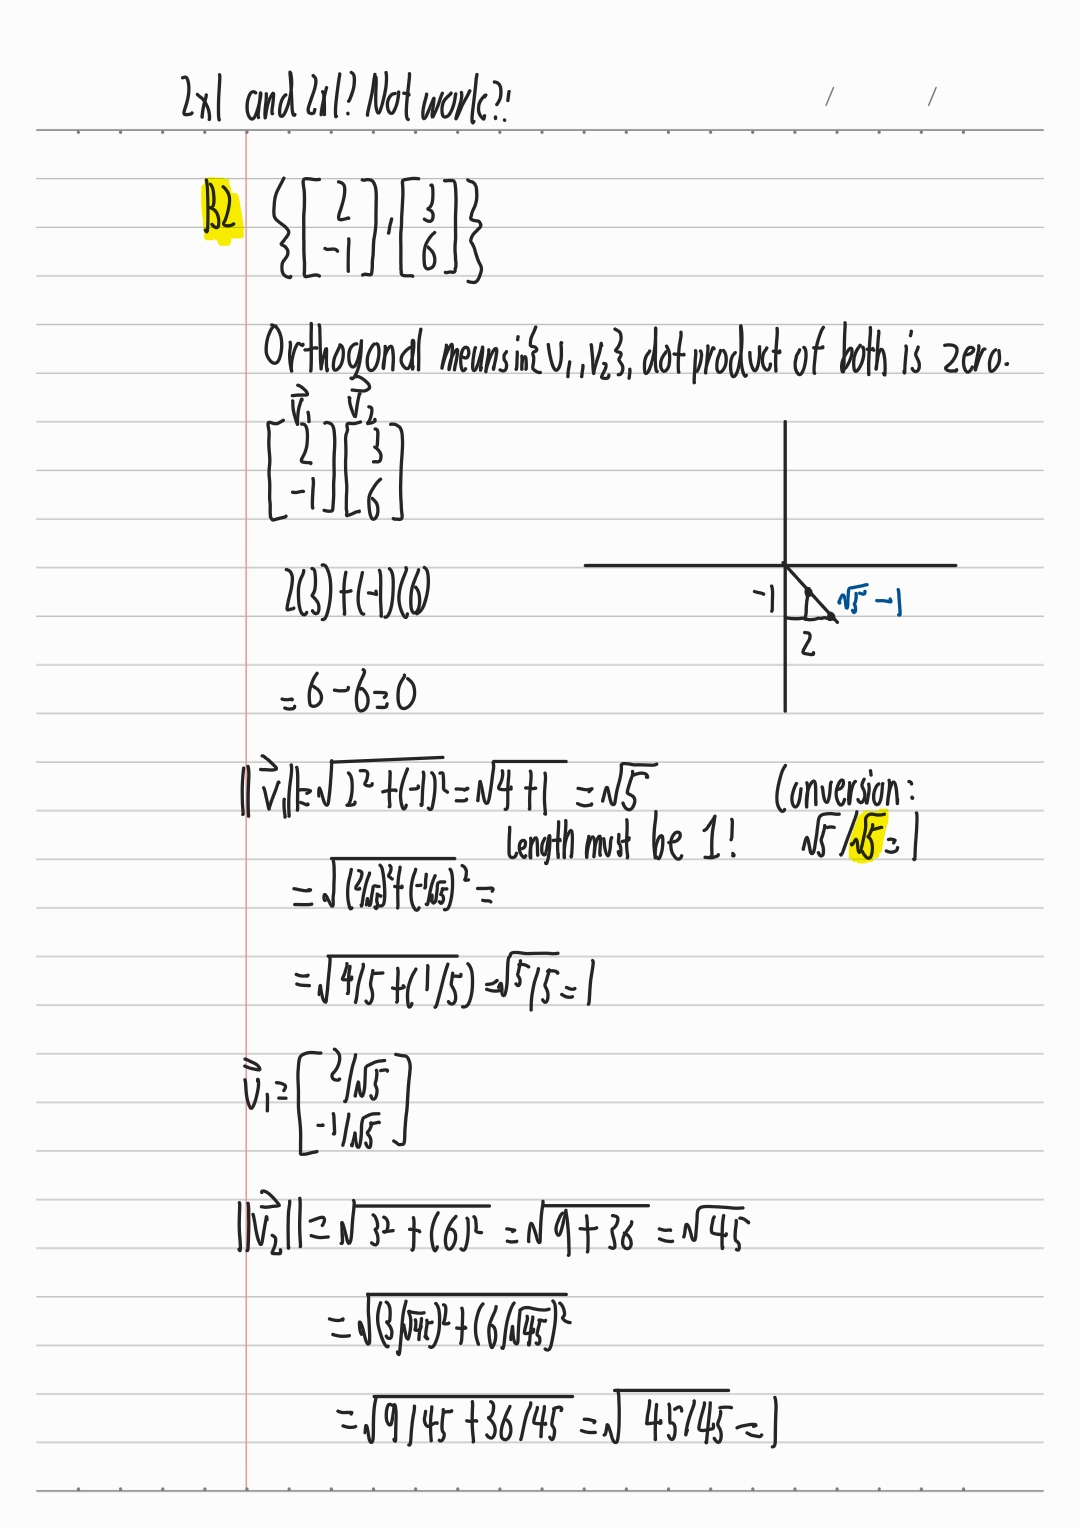 2x1 and 2x1? Not work?!
/ /
B2 { [ 2 -1 ], [ 3 6 ] }
Orthogonal means in {v₁, v₂}, dot product of both is zero.
v⃗₁ v⃗₂
[ 2 -1 ] [ 3 6 ]
2(3)+(-1)(6)
-1 √5 -1
2
= 6-6=0
||v⃗₁||=√(2²+(-1)²)=√(4+1)=√5 Conversion:
Length must be 1! √5/√5=1
=√((2/√5)²+(-1/√5)²)=
=√(4/5+(1/5))=√(5/5)=1
v⃗₁=[ 2/√5 -1/√5 ]
||v⃗₂||=√(3²+(6)²)=√(9+36)=√45
=√((3/√45)²+(6/√45)²)
=√(9/45+36/45)=√(45/45)=1